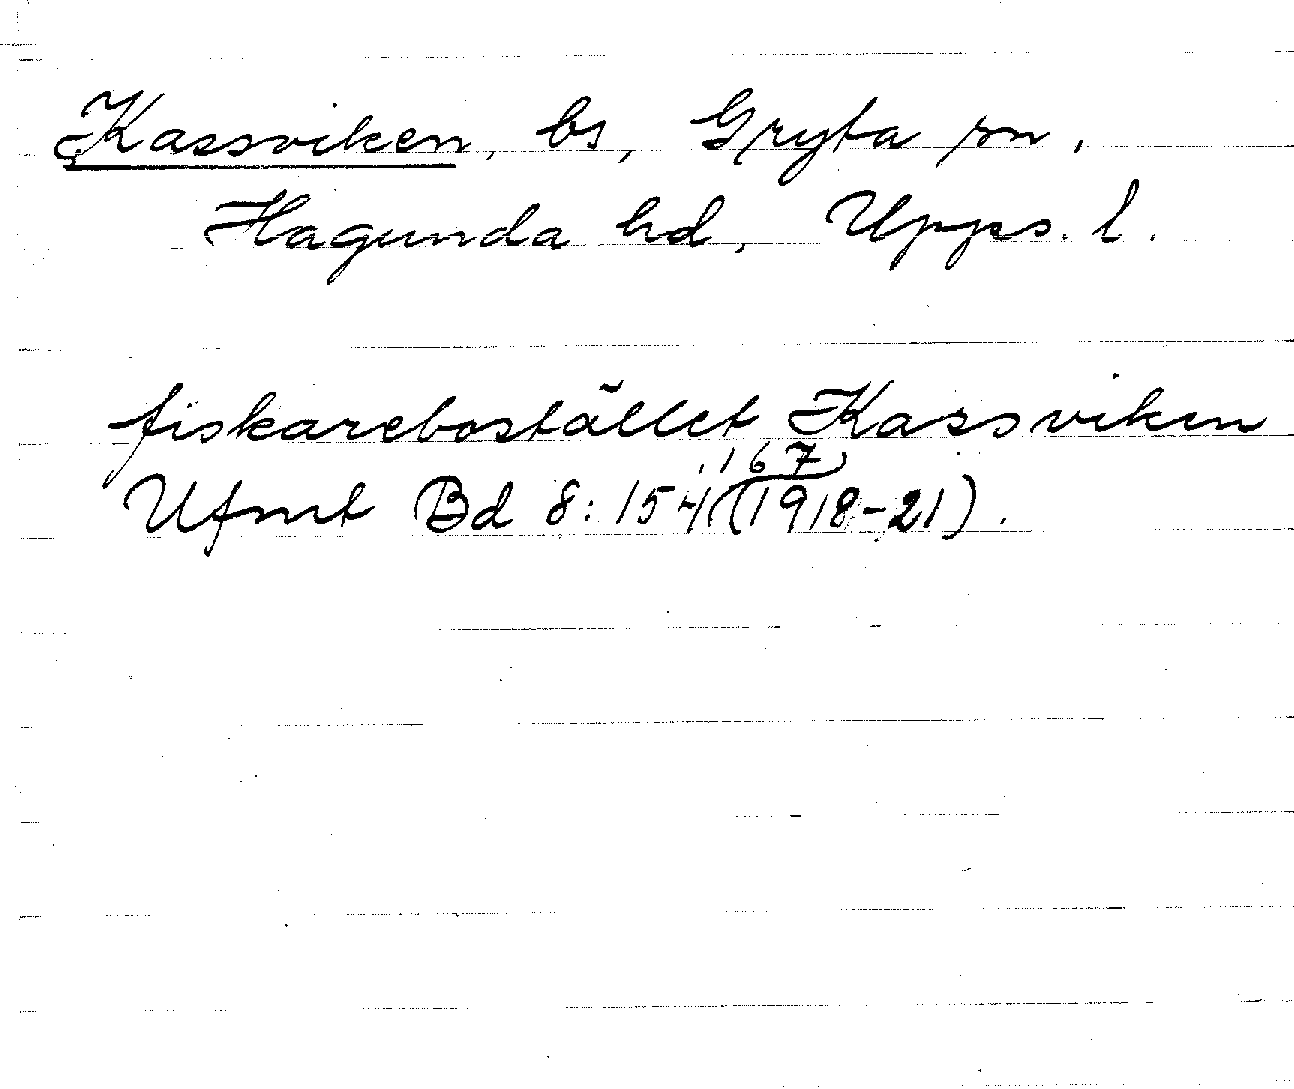 Kassviken, bs, Gryta sn,
Hagunda hd, Upps. l.
fiskarebostället Kassviken
Ufmt Bd 8: 154, 167 (1918-21).